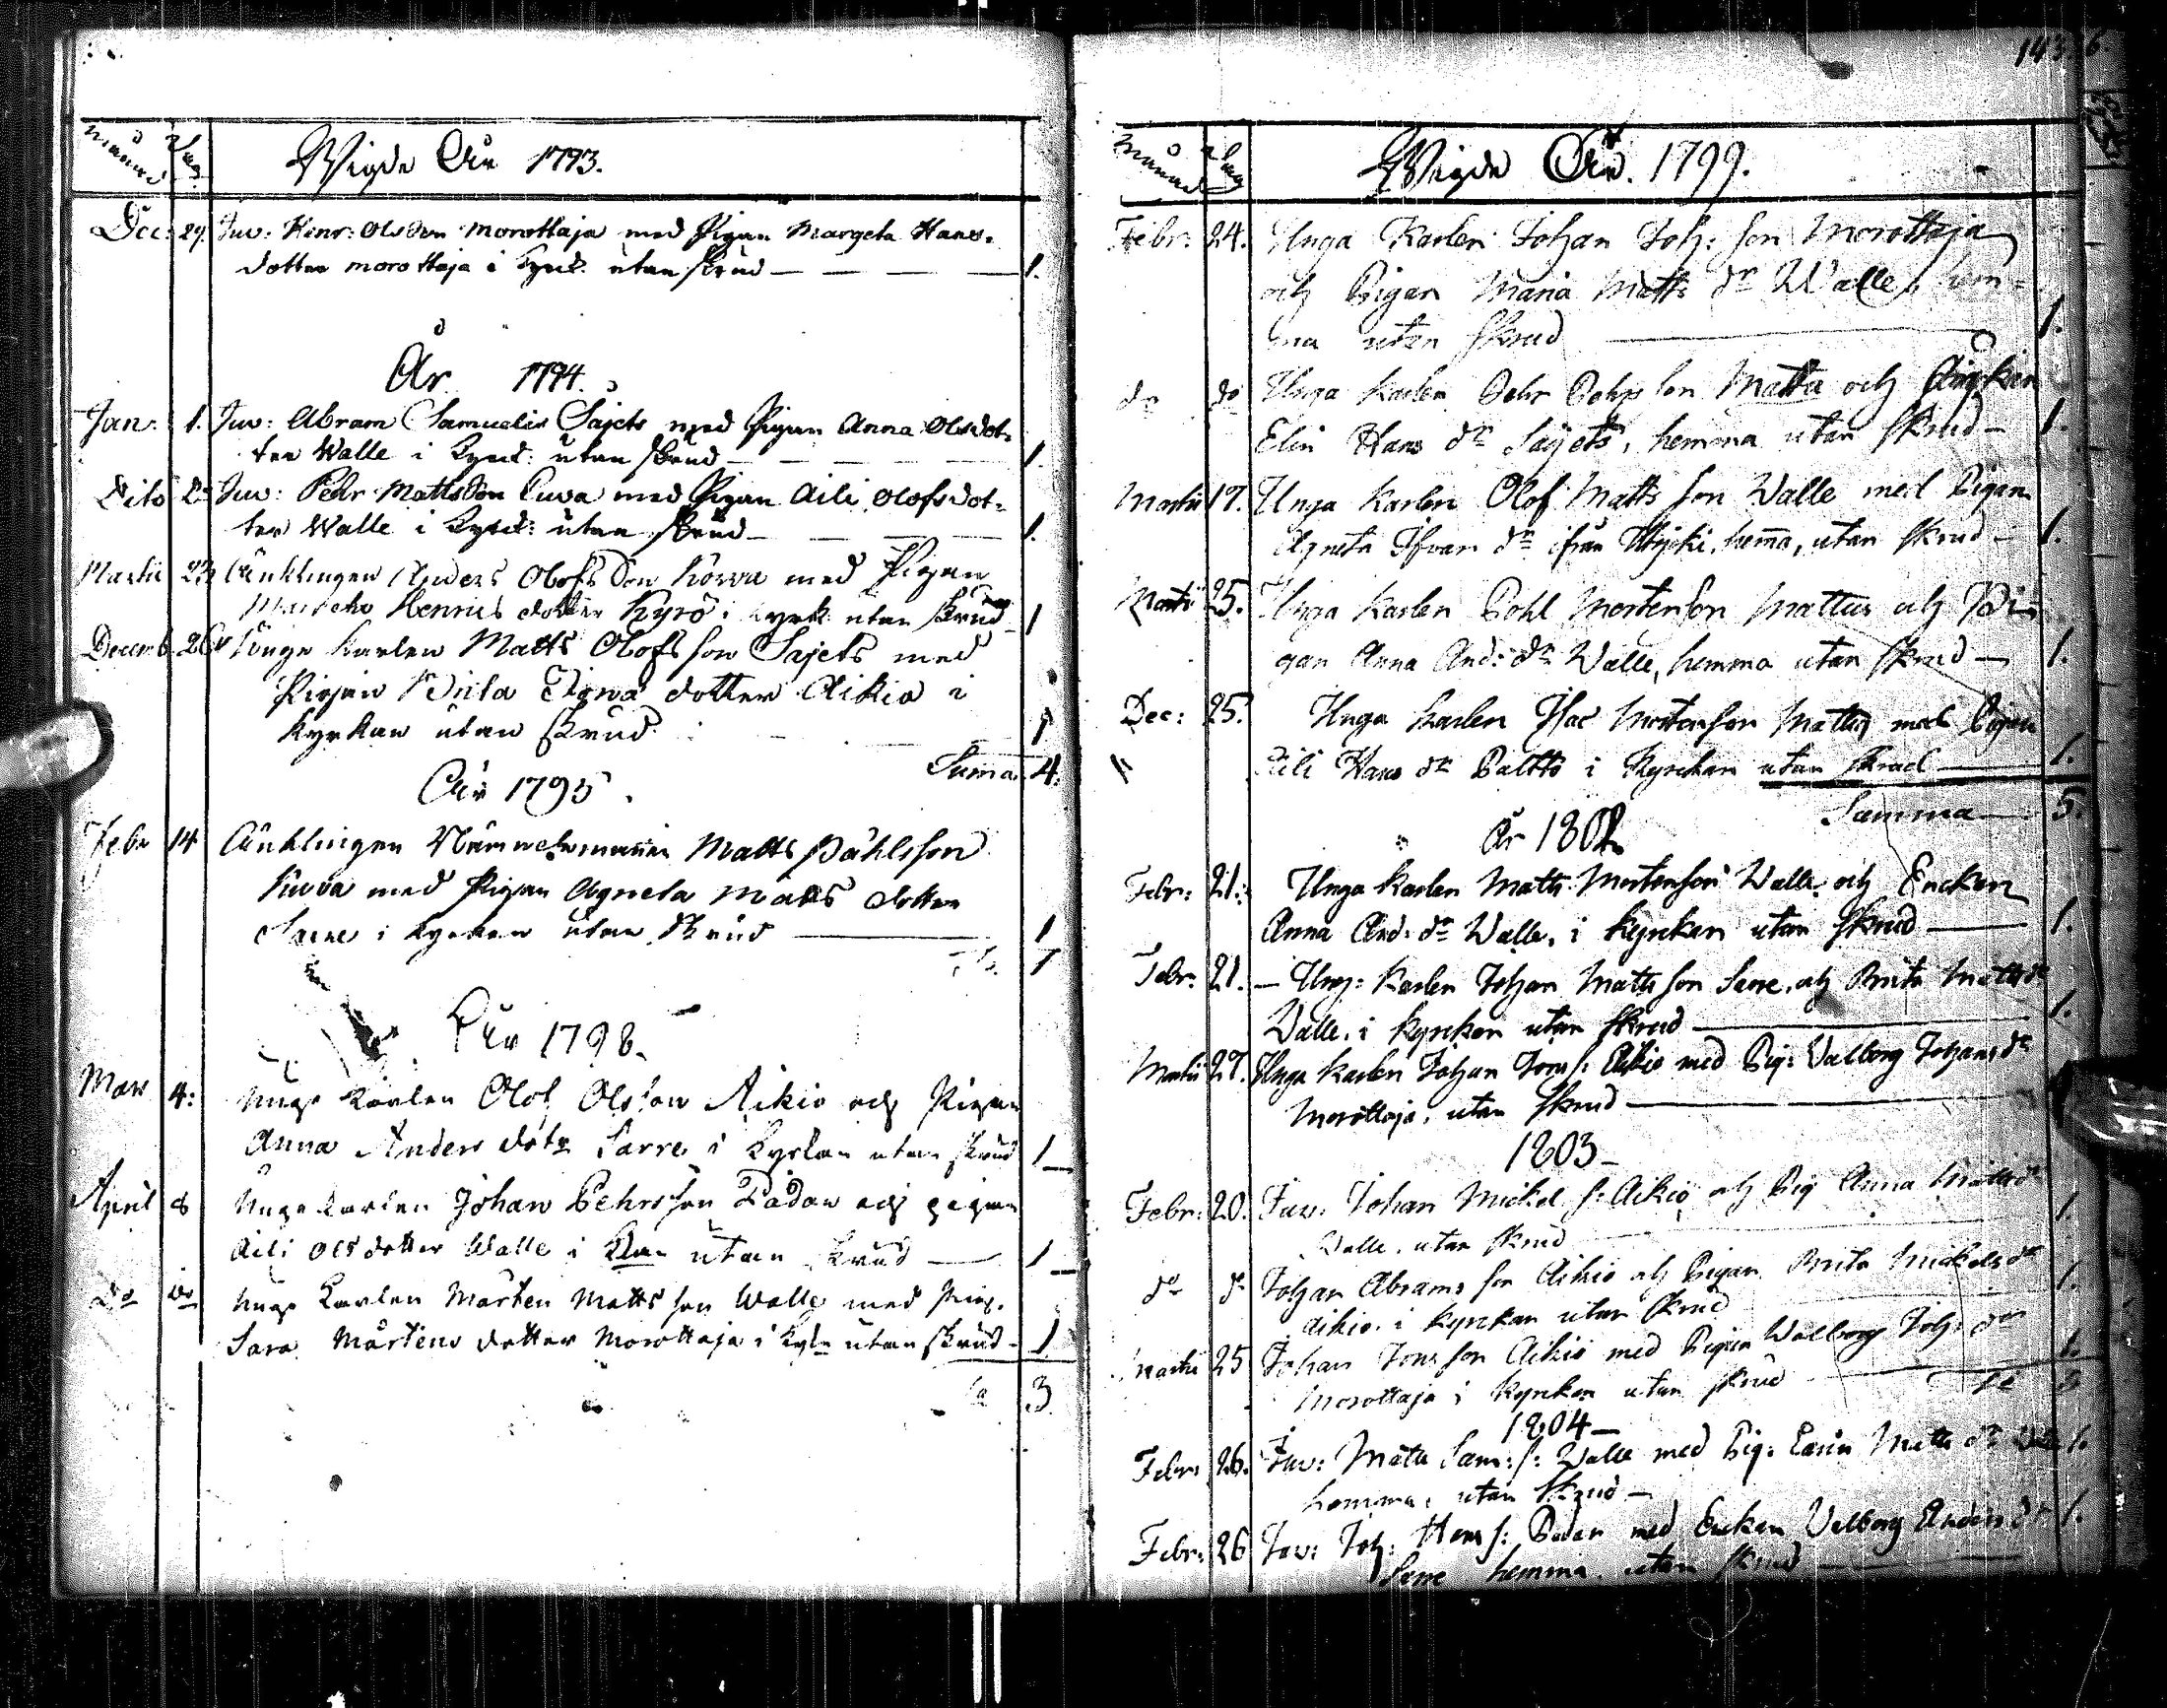 Månad Dag Wigde År 1793.
Dec: 29. Juv: Henr: Olsson Morottaja med Pigan Margeta Hans-
dotter Morottaja i Kyrk: utan skrud — — — 1.
År 1794.
Jan: 1. Juv: Abram Samuelis Sajets med Pigan Anna Olsdot-
ter Walle i Kyrk: utan skrud — — — 1.
Dito Juv: Pehr Matts Son Cuva med Pigan Aili Olofs dot-
ter Walle i Kyrk: utan skrud — — — 1.
Martii 23 Änklingen Anders Olofs Son Kórva med Pigan
Henrics dotter Kyrö i Kyrk utan skrud 1
Decemb. 26 Unge Karlen Matts Olofs son Sajets med
Pigan Brita dotter Aikio i
Kyrkan utan skrud 1
Suma. 4.
År 1795.
Febr 14 Änklingen Nämndemannen Matts Påhlsson
Kuva med Pigan Agneta Matts dotter
Sarre i Kyrkan utan Skrud — 1
Sa. 1
År 1798.
Mars 4: Unge Karlen Olof Olsson Aikio och Pigan
Anna Anders dotr Sarre i Kyrkan utan skrud 1
April 8 Unge Karlen Johan Pehrsson Padar och pigan
Aili Ols dotter Walle i utan skrud — 1
Do do Unge Karlen Mårten Matts son Walle med Pig.
Sara Mårtens dotter Morottaja i utan skrud - 1
Sa 3.
143 6.
Månad Dag Wigde År. 1799.
Febr: 24. Unga Karlen Johan Joh: son Morottaja
och Pigan Maria Matts dr Walle, hem-
ma utan skrud — 1.
do do Unga Karlen Pehr Pehrs son Matta och Änkan
Elin Hans dr Sajets, hemma utan skrud — 1.
Martii 17. Unga Karlen Olof Matts son Walle med Pigan
Agneta Ifvars dr ifrån hemma, utan skrud — 1.
Martii 25. Unga Karlen Pohl Mortenson Mattus och Pi-
gan Anna And: dr Walle, hemma utan skrud — 1.
Dec: 25. Unga Karlen Isac Mortenson Mattus med Pigan
Aili Hans dr Paltto i Kyrckan utan skrud — 1.
Summa — 5.
År 1802
Febr: 21. Unga Karlen Matts Mortenson Walle, och Enckan
Anna And: dr Walle, i Kyrckan utan skrud — 1.
Febr: 21. — Ung: Karlen Johan Matts son Sarre, och Brita Matts dr
Walle, i Kyrckan utan skrud — 1.
Martii 27. Unga Karlen Johan Jons s: Aikio med Pig: Walborg Johans dr
Morottaja, utan skrud —
1803 —
Febr: 20. Juv: Johan Mickel s: Aikio och Pig Anna Matts dr
Walle, utan skrud 1.
do do Johan Abrams son Aikio och Pigan Brita Mickels dr
Aikio, i Kyrckan utan skrud 1.
Martii 25 Johan Jons son Aikio med Pigan Walborg Joh: dr
Morottaja i Kyrckan utan skrud 1.
Sa 3
1804 —
Febr: 26. Juv: Matts Sam: s: Walle med Pig: Carin Matts dr 1.
hemma, utan skrud —
Febr: 26 Juv: Joh: Hans s: Padar med Enckan Walborg Anders dr 1.
Sarre hemma, utan skrud —